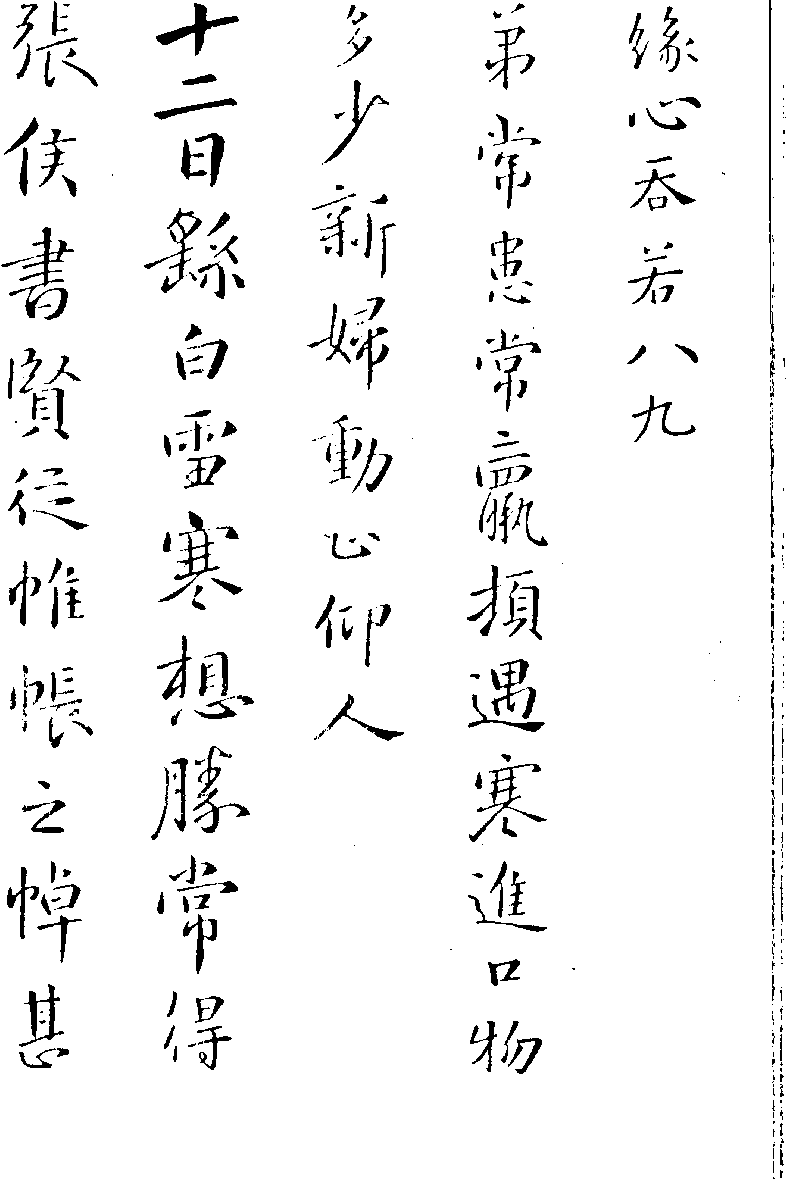 緣心吞若八九
弟常患常羸頓遇寒進口物
多少新婦動止仰人
十二日繇白雪寒想勝常得
張侯書賢從帷帳之悼甚